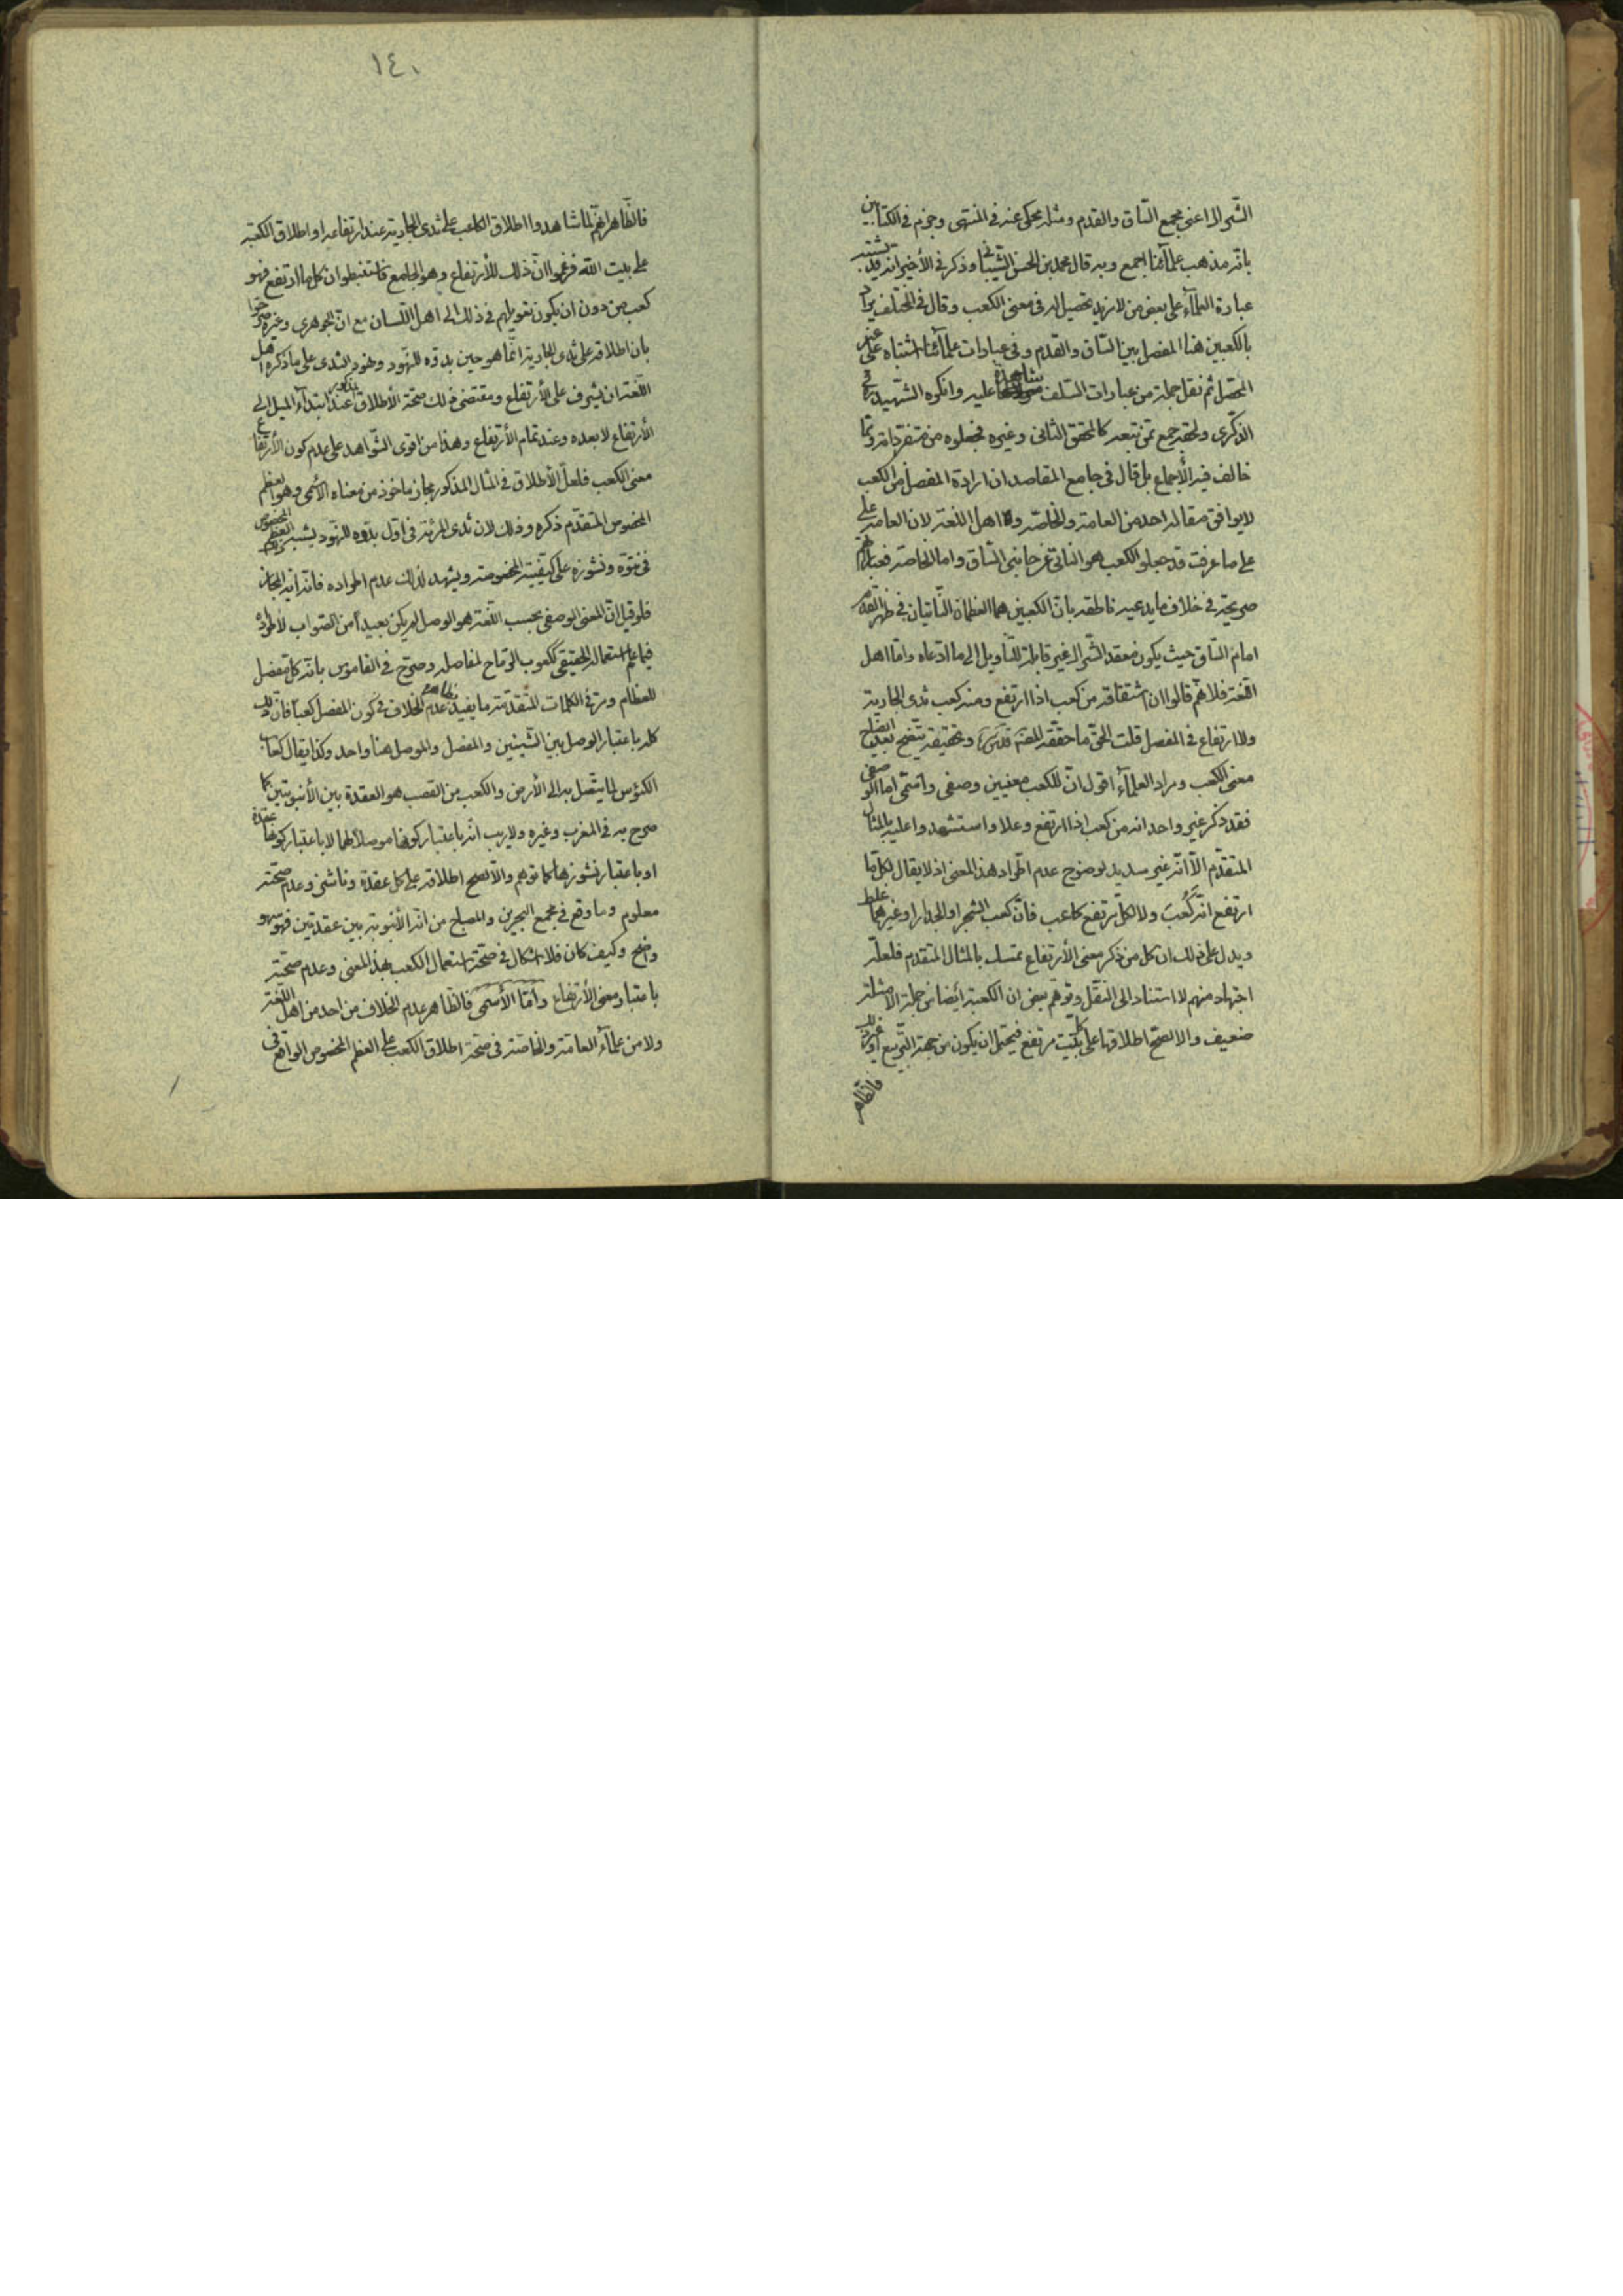 الشراك اعنى مجمع الساق والقدم ومثله يحكى عنه فى المنتهى وجزم فى الكتابين
بانه مذهب علمائنا اجمع وبه قال محمد بن الحسن الشيبانى وذكر فى الأخير انه قد تشتبه
عبارة العلماء على بعض من لا مزيد تحصيل له فى معنى الكعب وقال فى المختلف يراد
بالكعبين هنا المفصل بين الساق والقدم وفى عبارات علمائنا اشتباه على غير
المحصل ثم نقل جملة من عبارات السلف شاهدة عليه وانكره الشهيد فى
الذكرى ولحقه جمع ممن تبعه كالمحقق الثانى وغيره فجعلوه من متفرداته ومما
خالف فيه الأجماع بل قال فى جامع المقاصد ان ارادة المفصل من الكعب
لا يوافق مقالة احد من العامة والخاصة ولا اهل اللغة لان العامة على
على ما عرفت قد جعلوا الكعب هو الناتى عن جانبى الساق واما الخاصة فعباراتهم
صريحة فى خلاف ما يدعيه ناطقه بان الكعبين هما العظمان الناتيان فى ظهر القدم
امام الساق حيث يكون معقد الشراك غير قابلة للتأويل الى ما ادعاه واما اهل
اللغة فلانهم قالوا ان اشتقاقه من كعب اذا ارتفع ومنه كعب ثدى الجارية
ولا ارتفاع فى المفصل قلت الحق ما حققه العلامة قدس سره وتحقيقه يتضح بعد ايضاح
معنى الكعب ومراد العلماء اقول ان للكعب معنيين وصفى واسمى اما الوصفى
فقد ذكر غير واحد انه من كعب اذا ارتفع وعلا واستشهدوا عليه بالمثال
المتقدم الا انه غير سديد لوضوح عدم اطراد هذا المعنى اذ لا يقال لكل ما
ارتفع انه كعب ولا لكل مرتفع كاعب فان كعب الشجر او الجدار او غيرهما غلط
ويدل على ذلك ان كل من ذكر معنى الأرتفاع تمسك بالمثال المتقدم فلعله
اجتهاد منهم لا استناد الى النقل وتوهم بعض ان الكعبة ايضا من جملة الامثلة
ضعيف والا لصح اطلاقها على كل بيت مرتفع فيحتمل ان يكون من جهة التربيع او غير ذلك
فالظاهر
١٤٠
فالظاهر انهم لما شاهدوا اطلاق الكاعب على ثدى الجارية عند ارتفاعه او اطلاق الكعبة
على بيت الله فزعموا ان ذلك للأرتفاع وهو الجامع فاستنبطوا ان كل ما ارتفع فهو
كعب من دون ان يكون تعويلهم فى ذلك الى اهل اللسان مع ان الجوهرى وغيره صرحوا
بان اطلاقه على ثدى الجارية انما هو حين بدوه للنهود ونهود الثدى على ما ذكره اهل
اللغة ان يشرف على الأرتفاع ومقتضى ذلك صحة الأطلاق عند ابتداء الميل الى
الأرتفاع لا بعده وعند تمام الأرتفاع وهذا من اقوى الشواهد على عدم كون الأرتفاع
معنى الكعب فلعل الأطلاق فى المثال المذكور مجاز ماخوذ من معناه الأسمى وهو العظم
المخصوص المتقدم ذكره وذلك لان ثدى المرئة فى اول بدوه للنهود يشبه العظم المخصوص
فى نتوه ونشوزه على كيفيته المخصوصة ويشهد لذلك عدم اطراده فانه آية المجاز
فلو قيل ان المعنى الوصفى بحسب اللغة هو الوصل لم يكن بعيدا من الصواب لاطراده
فيما علم استعماله الحقيقى ككعوب الرماح لمفاصله وصرح فى القاموس بانه كل مفصل
للعظام ومر فى الكلمات المتقدمة ما يفيد عدم الخلاف فى كون المفصل كعبا فان ذلك
كله باعتبار الوصل بين الشيئين والمفصل والموصل هنا واحد وكذا يقال كعاب
الكؤس لما يتصل به الى الأرض والكعب من القصب هو العقدة بين الأنبوبتين كما
صرح به فى المغرب وغيره ولا ريب انه باعتبار كونها موصلا لهما لا باعتبار كونها عقدة
او باعتبار نشوزها كما توهم والا لصح اطلاقه على كل عقدة وناشز وعدم صحته
معلوم وما وقع فى مجمع البحرين والمصباح من انه الأنبوبة بين عقدتين فهو سهو
واضح وكيف كان فلا اشكال فى صحة استعمال الكعب بهذا المعنى وعدم صحته
باعتبار معنى الأرتفاع واما الأسمى فالظاهر عدم الخلاف من احد من اهل اللغة
ولا من علماء العامة والخاصة فى صحة اطلاق الكعب على العظم المخصوص الواقع فى